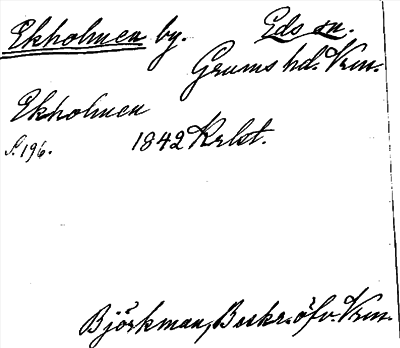 Ekholmen by. Eds sn.
Grums hd. Vrm.
Ekholmen
S. 196. 1842 Krlst.
Björkman, Beskr. öfv. Vrm.